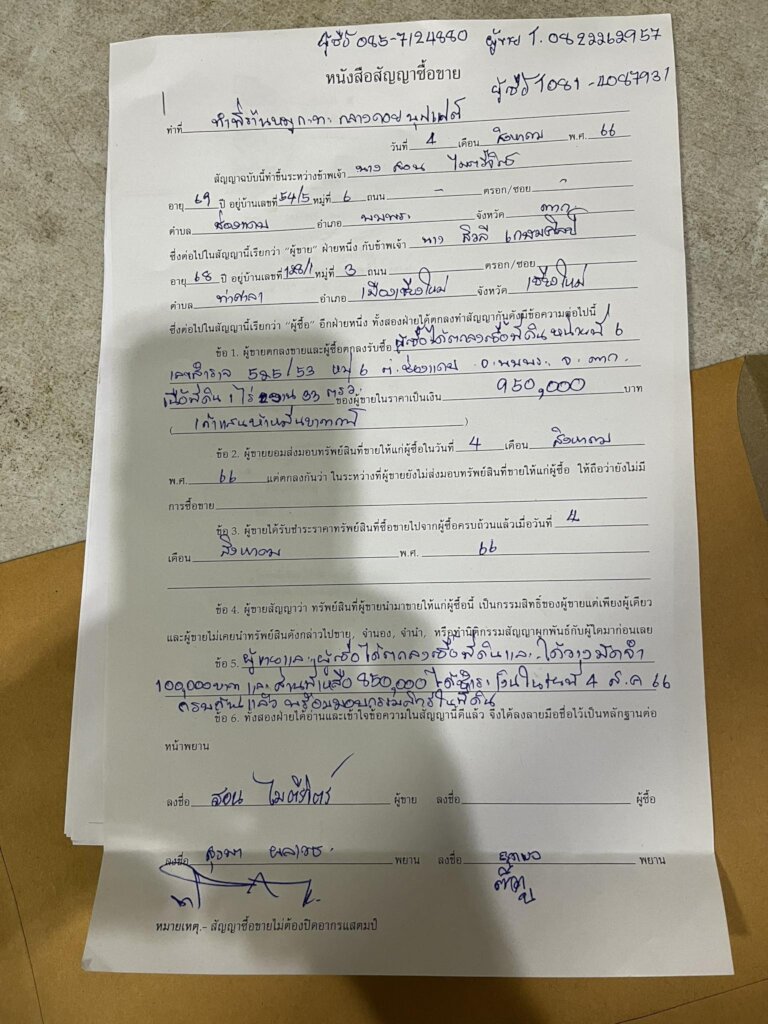 ผู้ซื้อ 085-7124880 ผู้ขาย โ. 0822262957
หนังสือสัญญาซื้อขาย
ผู้ซื้อ โ 081-4087931
ทำที่ ทำที่ร้านหมูกะทะ กลางดอย บุฟเฟ่ต์
วันที่ 4 เดือน สิงหาคม พ.ศ. 66
สัญญาฉบับนี้ทำขึ้นระหว่างข้าพเจ้า นาง สอน
อายุ 69 ปี อยู่บ้านเลขที่ 54/5 หมู่ที่ 6 ถนน - ตรอก/ซอย -
ตำบล ช่องแคบ อำเภอ พบพระ จังหวัด ตาก
ซึ่งต่อไปในสัญญานี้เรียกว่า "ผู้ขาย" ฝ่ายหนึ่ง กับข้าพเจ้า นาง สิวลี
อายุ 68 ปี อยู่บ้านเลขที่ 128/1 หมู่ที่ 3 ถนน ตรอก/ซอย
ตำบล ท่าศาลา อำเภอ เมืองเชียงใหม่ จังหวัด เชียงใหม่
ซึ่งต่อไปในสัญญานี้เรียกว่า "ผู้ซื้อ" อีกฝ่ายหนึ่ง ทั้งสองฝ่ายได้ตกลงทำสัญญากันดังมีข้อความต่อไปนี้
ข้อ 1. ผู้ขายตกลงขายและผู้ซื้อตกลงรับซื้อ ผู้ซื้อได้ตกลงซื้อที่ดิน หมู่ที่ 6
เลขสำรวจ 525/53 หมู่ 6 ต.ช่องแคบ อ.พบพระ จ.ตาก
เนื้อที่ดิน 1 ไร่ งาน 33 ตรว. ของผู้ขายในราคาเป็นเงิน 950,000 บาท
(เก้าแสนห้าหมื่นบาทถ้วน)
ข้อ 2. ผู้ขายยอมส่งมอบทรัพย์สินที่ขายให้แก่ผู้ซื้อในวันที่ 4 เดือน สิงหาคม
พ.ศ. 66 แต่ตกลงกันว่า ในระหว่างที่ผู้ขายยังไม่ส่งมอบทรัพย์สินที่ขายให้แก่ผู้ซื้อ ให้ถือว่ายังไม่มี
การซื้อขาย
ข้อ 3. ผู้ขายได้รับชำระราคาทรัพย์สินที่ซื้อขายไปจากผู้ซื้อครบถ้วนแล้วเมื่อวันที่ 4
เดือน สิงหาคม พ.ศ. 66
ข้อ 4. ผู้ขายสัญญาว่า ทรัพย์สินที่ผู้ขายนำมาขายให้แก่ผู้ซื้อนี้ เป็นกรรมสิทธิ์ของผู้ขายแต่เพียงผู้เดียว
และผู้ขายไม่เคยนำทรัพย์สินดังกล่าวไปขาย, จำนอง, จำนำ, หรือทำนิติกรรมสัญญาผูกพันธ์กับผู้ใดมาก่อนเลย
ข้อ 5. ผู้ขายและผู้ซื้อได้ตกลงซื้อที่ดินและได้วางมัดจำ
100,000บาท และส่วนที่เหลือ 850,000 ได้ชำระเงินในวันที่ 4 ส.ค 66
ครบถ้วนแล้ว พร้อมมอบกรรมสิทธิ์ในที่ดิน
ข้อ 6. ทั้งสองฝ่ายได้อ่านและเข้าใจข้อความในสัญญานี้ดีแล้ว จึงได้ลงลายมือชื่อไว้เป็นหลักฐานต่อ
หน้าพยาน
ลงชื่อ สอน ผู้ขาย ลงชื่อ ผู้ซื้อ
ลงชื่อ พยาน ลงชื่อ พยาน
หมายเหตุ.- สัญญาซื้อขายไม่ต้องปิดอากรแสตมป์